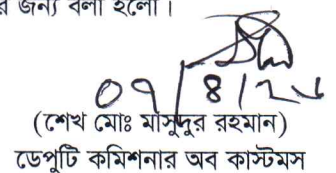 র জন্য বলা হলো।
০৭/৪/২৬
(শেখ মোঃ মাসুদুর রহমান)
ডেপুটি কমিশনার অব কাস্টমস